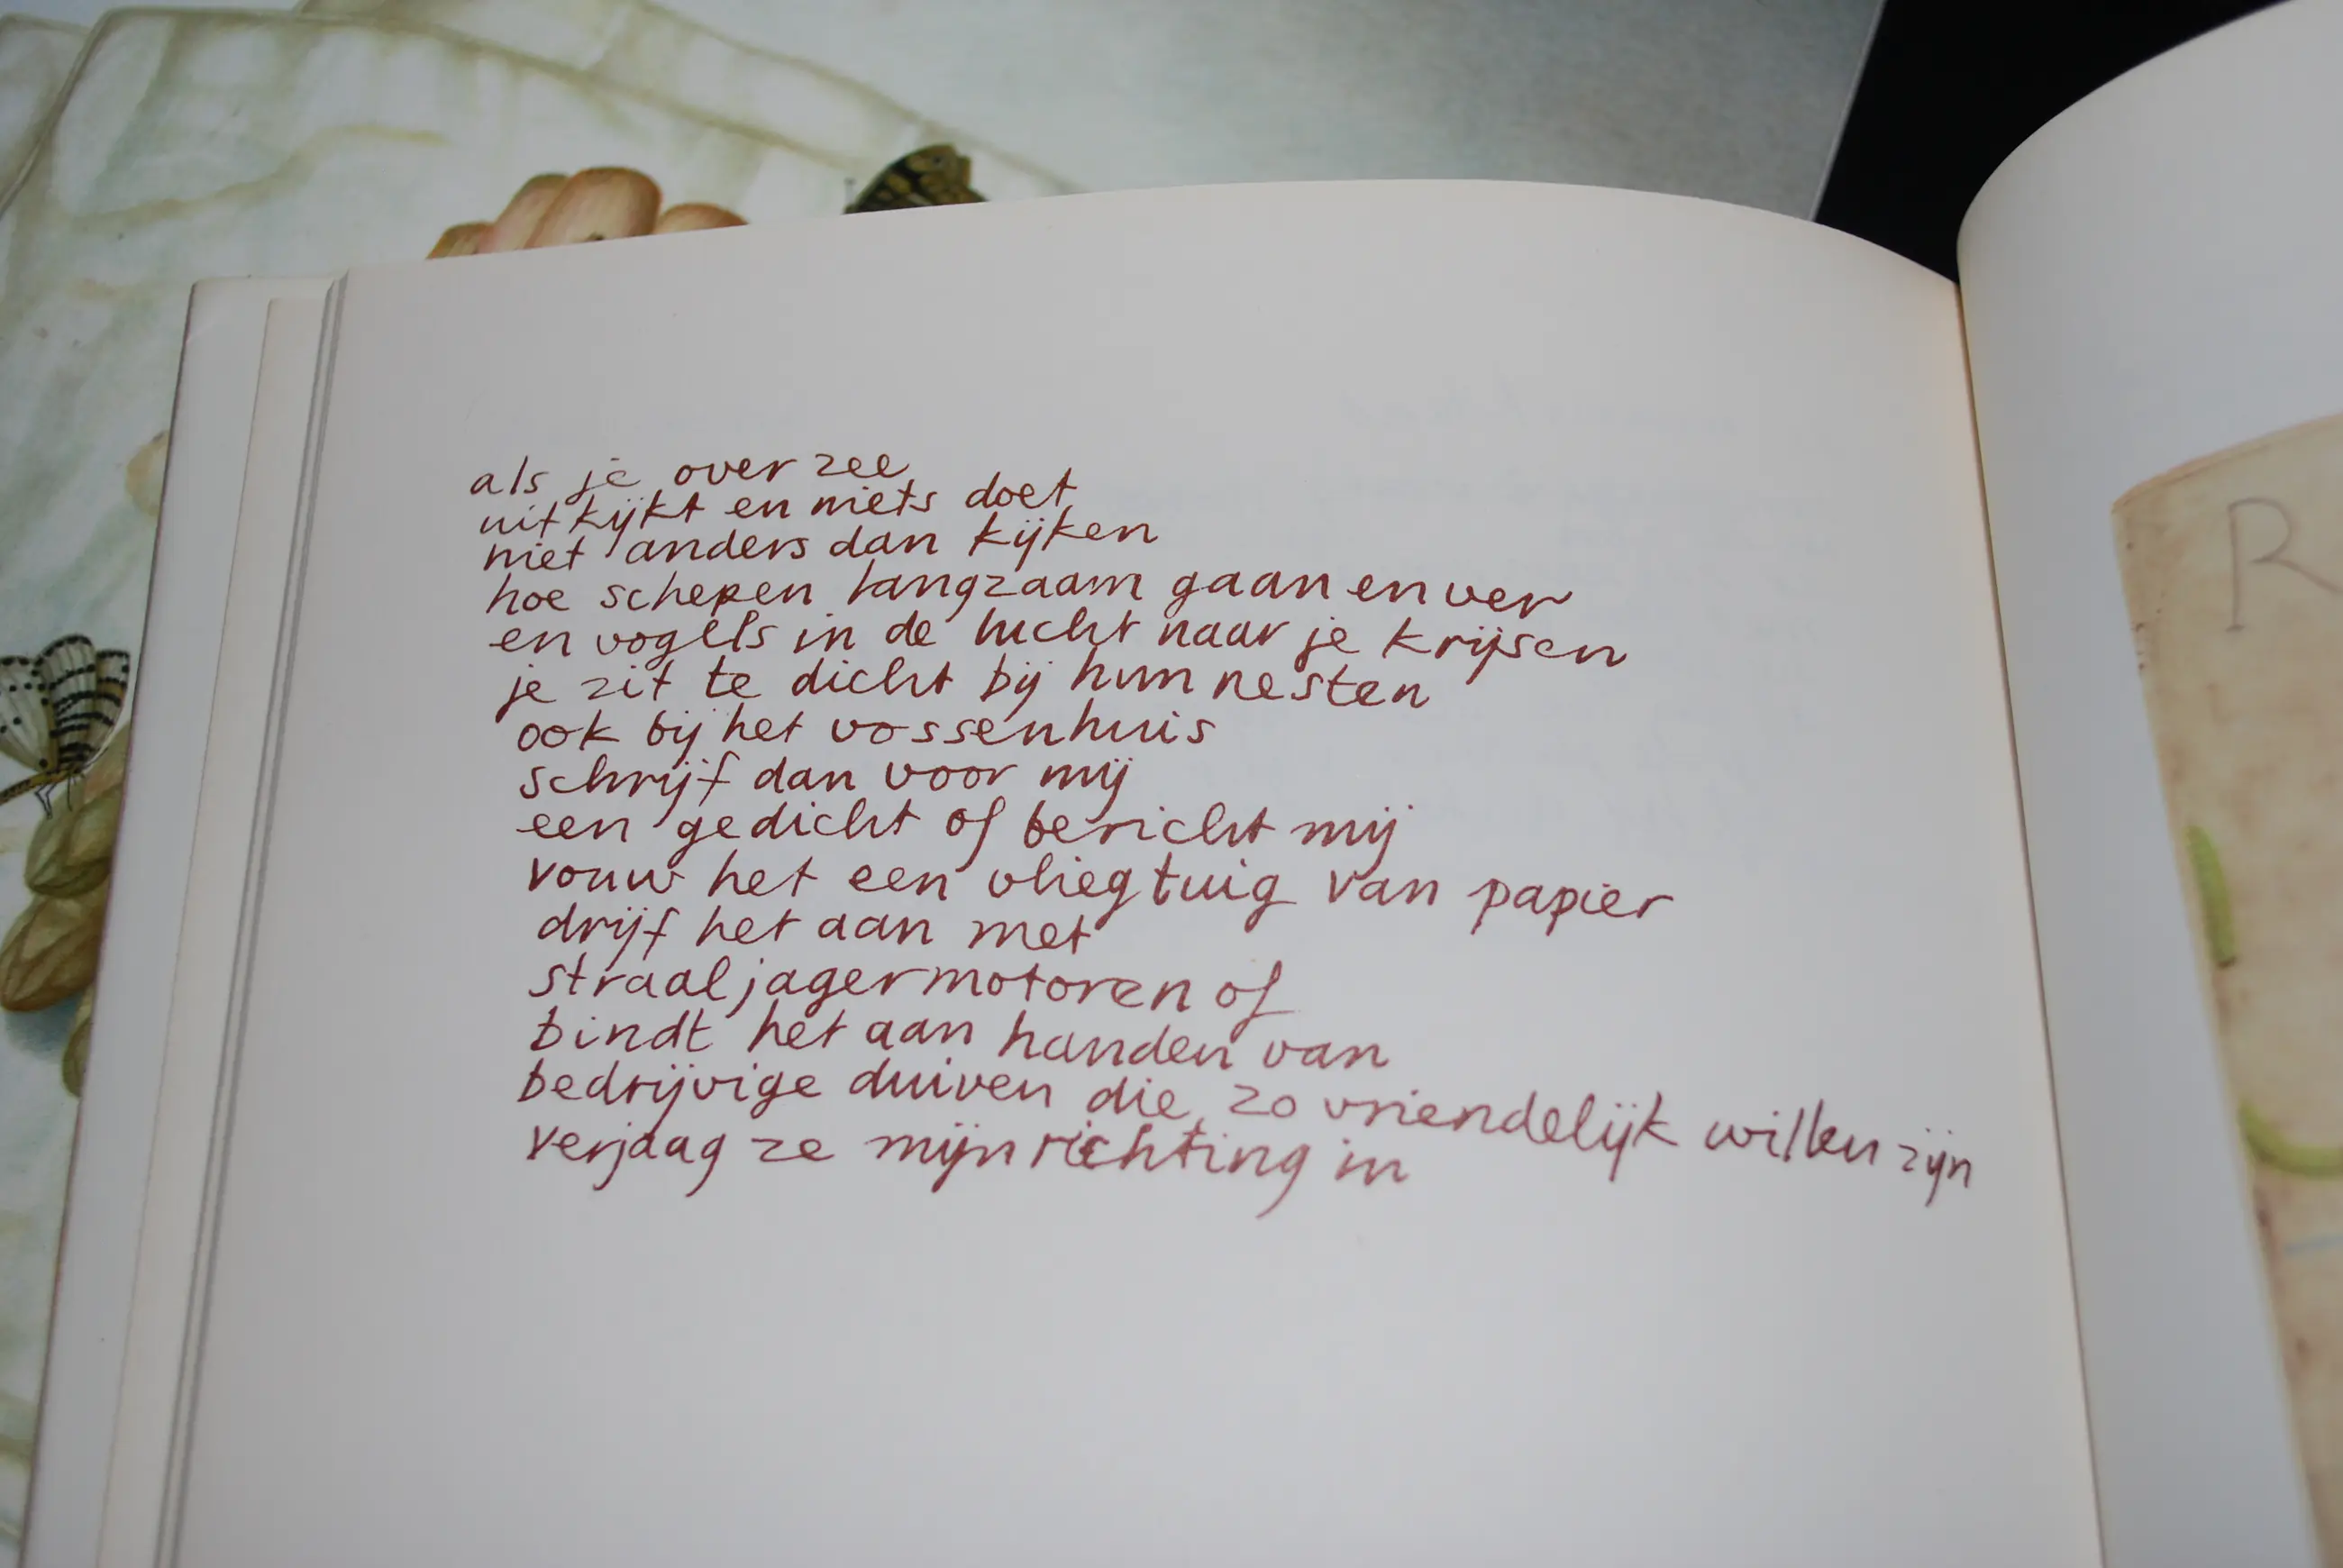 als je over zee
uitkijkt en niets doet
niet anders dan kijken
hoe schepen langzaam gaan en ver
en vogels in de lucht naar je krijsen
je zit te dicht bij hun nesten
ook bij het vossenhuis
schrijf dan voor mij
een gedicht of bericht mij
vouw het een vliegtuig van papier
drijf het aan met
straaljagermotoren of
bindt het aan handen van
bedrijvige duiven die zo vriendelijk willen zijn
verjaag ze mijn richting in
R